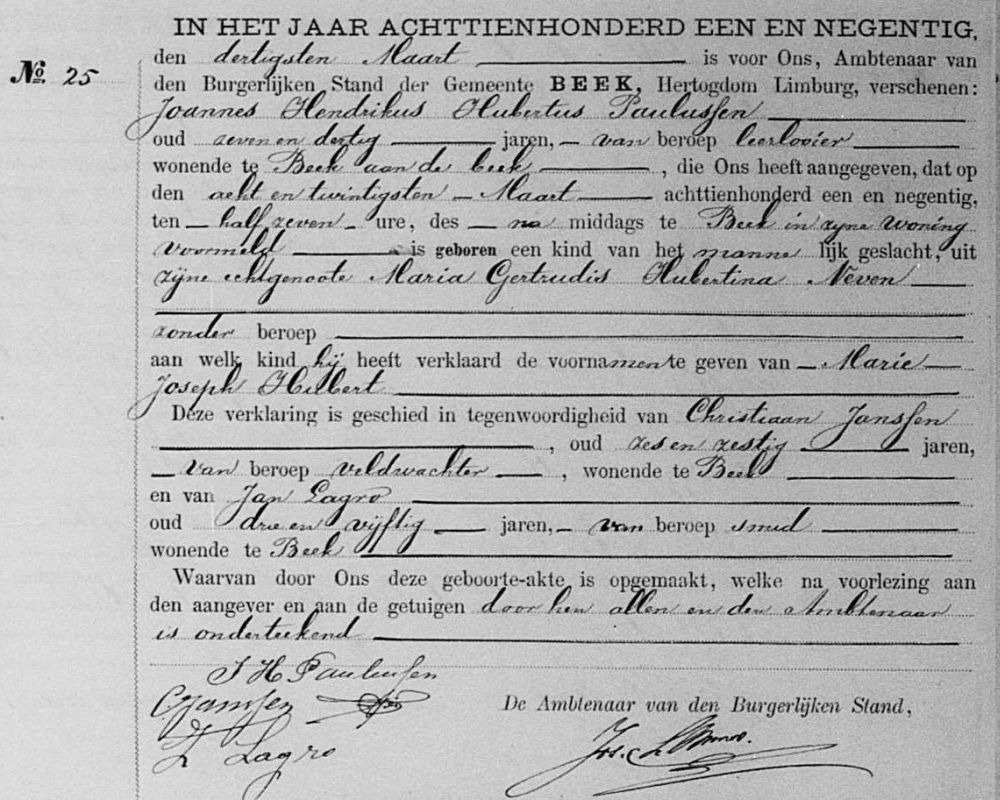 IN HET JAAR ACHTTIENHONDERD EEN EN NEGENTIG,
No. 25
den dertigsten Maart is voor Ons, Ambtenaar van
den Burgerlijken Stand der Gemeente BEEK, Hertogdom Limburg, verschenen:
Joannes Hendrikus Hubertus Paulussen
oud zeven en dertig jaren, van beroep leerlooier
wonende te Beek aan de beek, die Ons heeft aangegeven, dat op
den acht en twintigsten Maart achttienhonderd een en negentig,
ten half zeven ure, des na middags te Beek in zyne woning
voormeld is geboren een kind van het mannelijk geslacht, uit
zijne echtgenoote Maria Gertrudis Hubertina Neven
zonder beroep
aan welk kind hij heeft verklaard de voornamen te geven van Marie
Joseph Hubert
Deze verklaring is geschied in tegenwoordigheid van Christiaan Janssen
, oud zes en zestig jaren,
van beroep veldwachter, wonende te Beek
en van Jan Lagro
oud drie en vijftig jaren, van beroep smid
wonende te Beek
Waarvan door Ons deze geboorte-akte is opgemaakt, welke na voorlezing aan
den aangever en aan de getuigen door hen allen en den Ambtenaar
is onderteekend
J H Paulussen
C Janssen
De Ambtenaar van den Burgerlijken Stand,
Lagro
Jos.